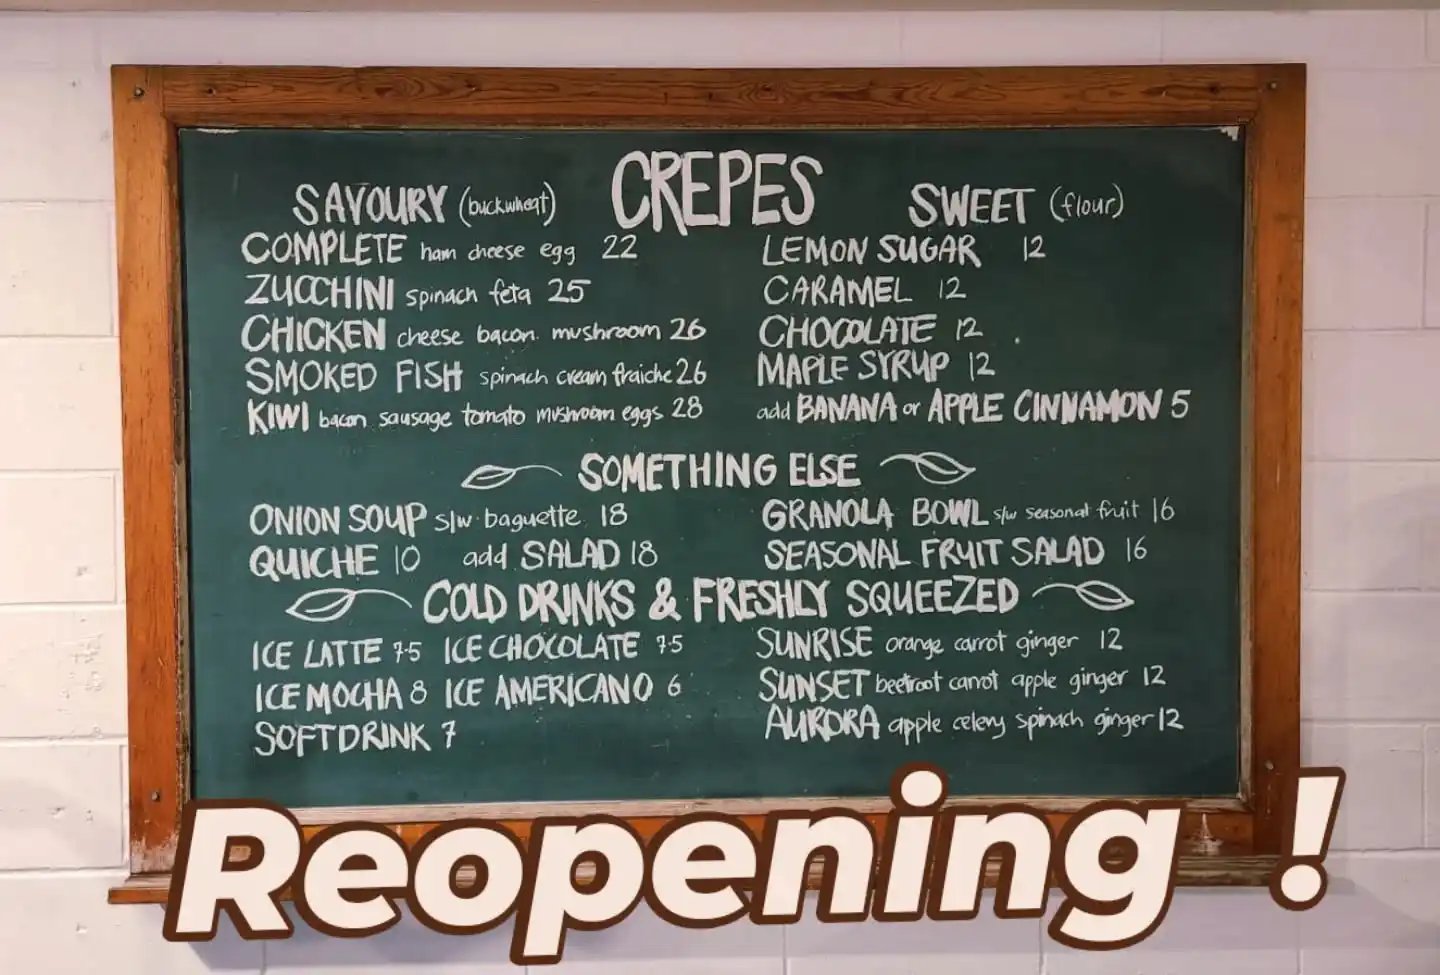 CREPES
SAVOURY (buckwheat)
COMPLETE ham cheese egg 22
ZUCCHINI spinach feta 25
CHICKEN cheese bacon mushroom 26
SMOKED FISH spinach cream fraiche 26
KIWI bacon sausage tomato mushroom eggs 28
SWEET (flour)
LEMON SUGAR 12
CARAMEL 12
CHOCOLATE 12
MAPLE SYRUP 12
add BANANA or APPLE CINNAMON 5
SOMETHING ELSE
ONION SOUP s/w baguette 18
QUICHE 10 add SALAD 18
GRANOLA BOWL s/w seasonal fruit 16
SEASONAL FRUIT SALAD 16
COLD DRINKS & FRESHLY SQUEEZED
ICE LATTE 7.5 ICE CHOCOLATE 7.5
ICE MOCHA 8 ICE AMERICANO 6
SOFTDRINK 7
SUNRISE orange carrot ginger 12
SUNSET beetroot carrot apple ginger 12
AURORA apple celery spinach ginger 12
Reopening !